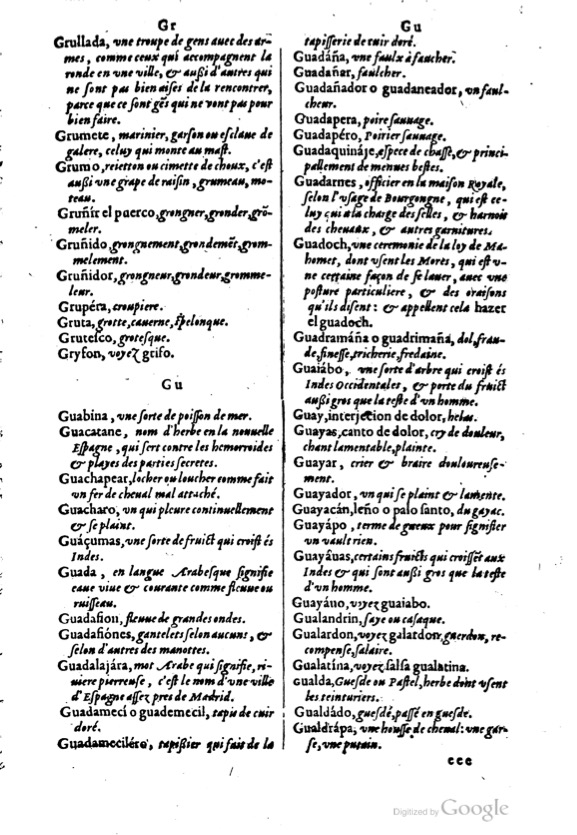 Gr
Grullada, vne troupe de gens auec des ar-
mes, comme ceux qui accompagnent la
ronde en vne ville, & außi d'autres qui
ne sont pas bien aises de la rencontrer,
parce que ce sont gẽs qui ne vont pas pour
bien faire.
Grumete, marinier, garson ou esclaue de
galere, celuy qui monte au mast.
Grumo, reietton ou cimette de choux, c'est
außi vne grape de raisin, grumeau, mo-
teau.
Gruñir el puerco, grongner, gronder, grõ-
meler.
Gruñido, grongnement, grondemẽt, grom-
melement.
Gruñidor, grongneur, grondeur, gromme-
leur.
Grupéra, croupiere.
Gruta, grotte, cauerne, spelonque.
Grutesco, grotesque.
Gryfon, voyez grifo.
Gu
Guabina, vne sorte de poisson de mer.
Guacatane, nom d'herbe en la nouuelle
Espagne, qui sert contre les hemorroides
& playes des parties secretes.
Guachapear, locher ou loucher comme fait
vn fer de cheual mal attaché.
Guacharo, vn qui pleure continuellement
& se plaint.
Guáçumas, vne sorte de fruict qui croist és
Indes.
Guada, en langue Arabesque signifie
eaue viue & courante comme fleuue ou
ruisseau.
Guadafion, fleuue de grandes ondes.
Guadafiónes, gantelets selon aucuns, &
selon d'autres des manottes.
Guadalajára, mot Arabe qui signifie, ri-
uiere pierreuse, c'est le nom d'vne ville
d'Espagne assez pres de Madrid.
Guadamecí o guademecil, tapis de cuir
doré.
Guadameciléro, tapißier qui fait de la
Gu
tapisserie de cuir doré.
Guadáña, vne faulx à faucher.
Guadañar, faulcher.
Guadañador o guadaneador, vn faul-
cheur.
Guadapera, poire sauuage.
Guadapéro, Poirier sauuage.
Guadaquináje, espece de chasse, & princi-
pallement de menues bestes.
Guadarnes, officier en la maison Royale,
selon l'vsage de Bourgongne, qui est ce-
luy qui a la charge des selles, & harnois
des cheuaux, & autres garnitures.
Guadoch, vne ceremonie de la loy de Ma-
homet, dont vsent les Mores, qui est v-
ne certaine façon de se lauer, auec vne
posture particuliere, & des oraisons
qu'ils disent: & appellent cela hazer
el guadoch.
Guadramáña o guadrimaña, dol, frau-
de, finesse, tricherie, fredaine.
Guaiabo, vne sorte d'arbre qui croist és
Indes Occidentales, & porte du fruict
außi gros que la teste d'vn homme.
Guay, interjection de dolor, helas.
Guayas, canto de dolor, cry de douleur,
chant lamentable, plainte.
Guayar, crier & braire douloureuse-
ment.
Guayador, vn qui se plaint & lamente.
Guayacán, leño o palo santo, du gayac.
Guayápo, terme de gueux pour signifier
vn vault rien.
Guayâuas, certains fruicts qui croissẽt aux
Indes & qui sont außi gros que la teste
d'vn homme.
Guayáuo, voyez guaiabo.
Gualandrin, saye ou casaque.
Gualardon, voyez galardon, guerdon, re-
compense, salaire.
Gualatína, voyez salsa gualatina.
gualda, Guesde ou Pastel, herbe dont vsent
les teinturiers.
Gualdádo, guesdé, passé en guesde.
Gualdrápa, vne housse de cheual: vne gar-
se, vne putain.
ccc
Digitized by Google